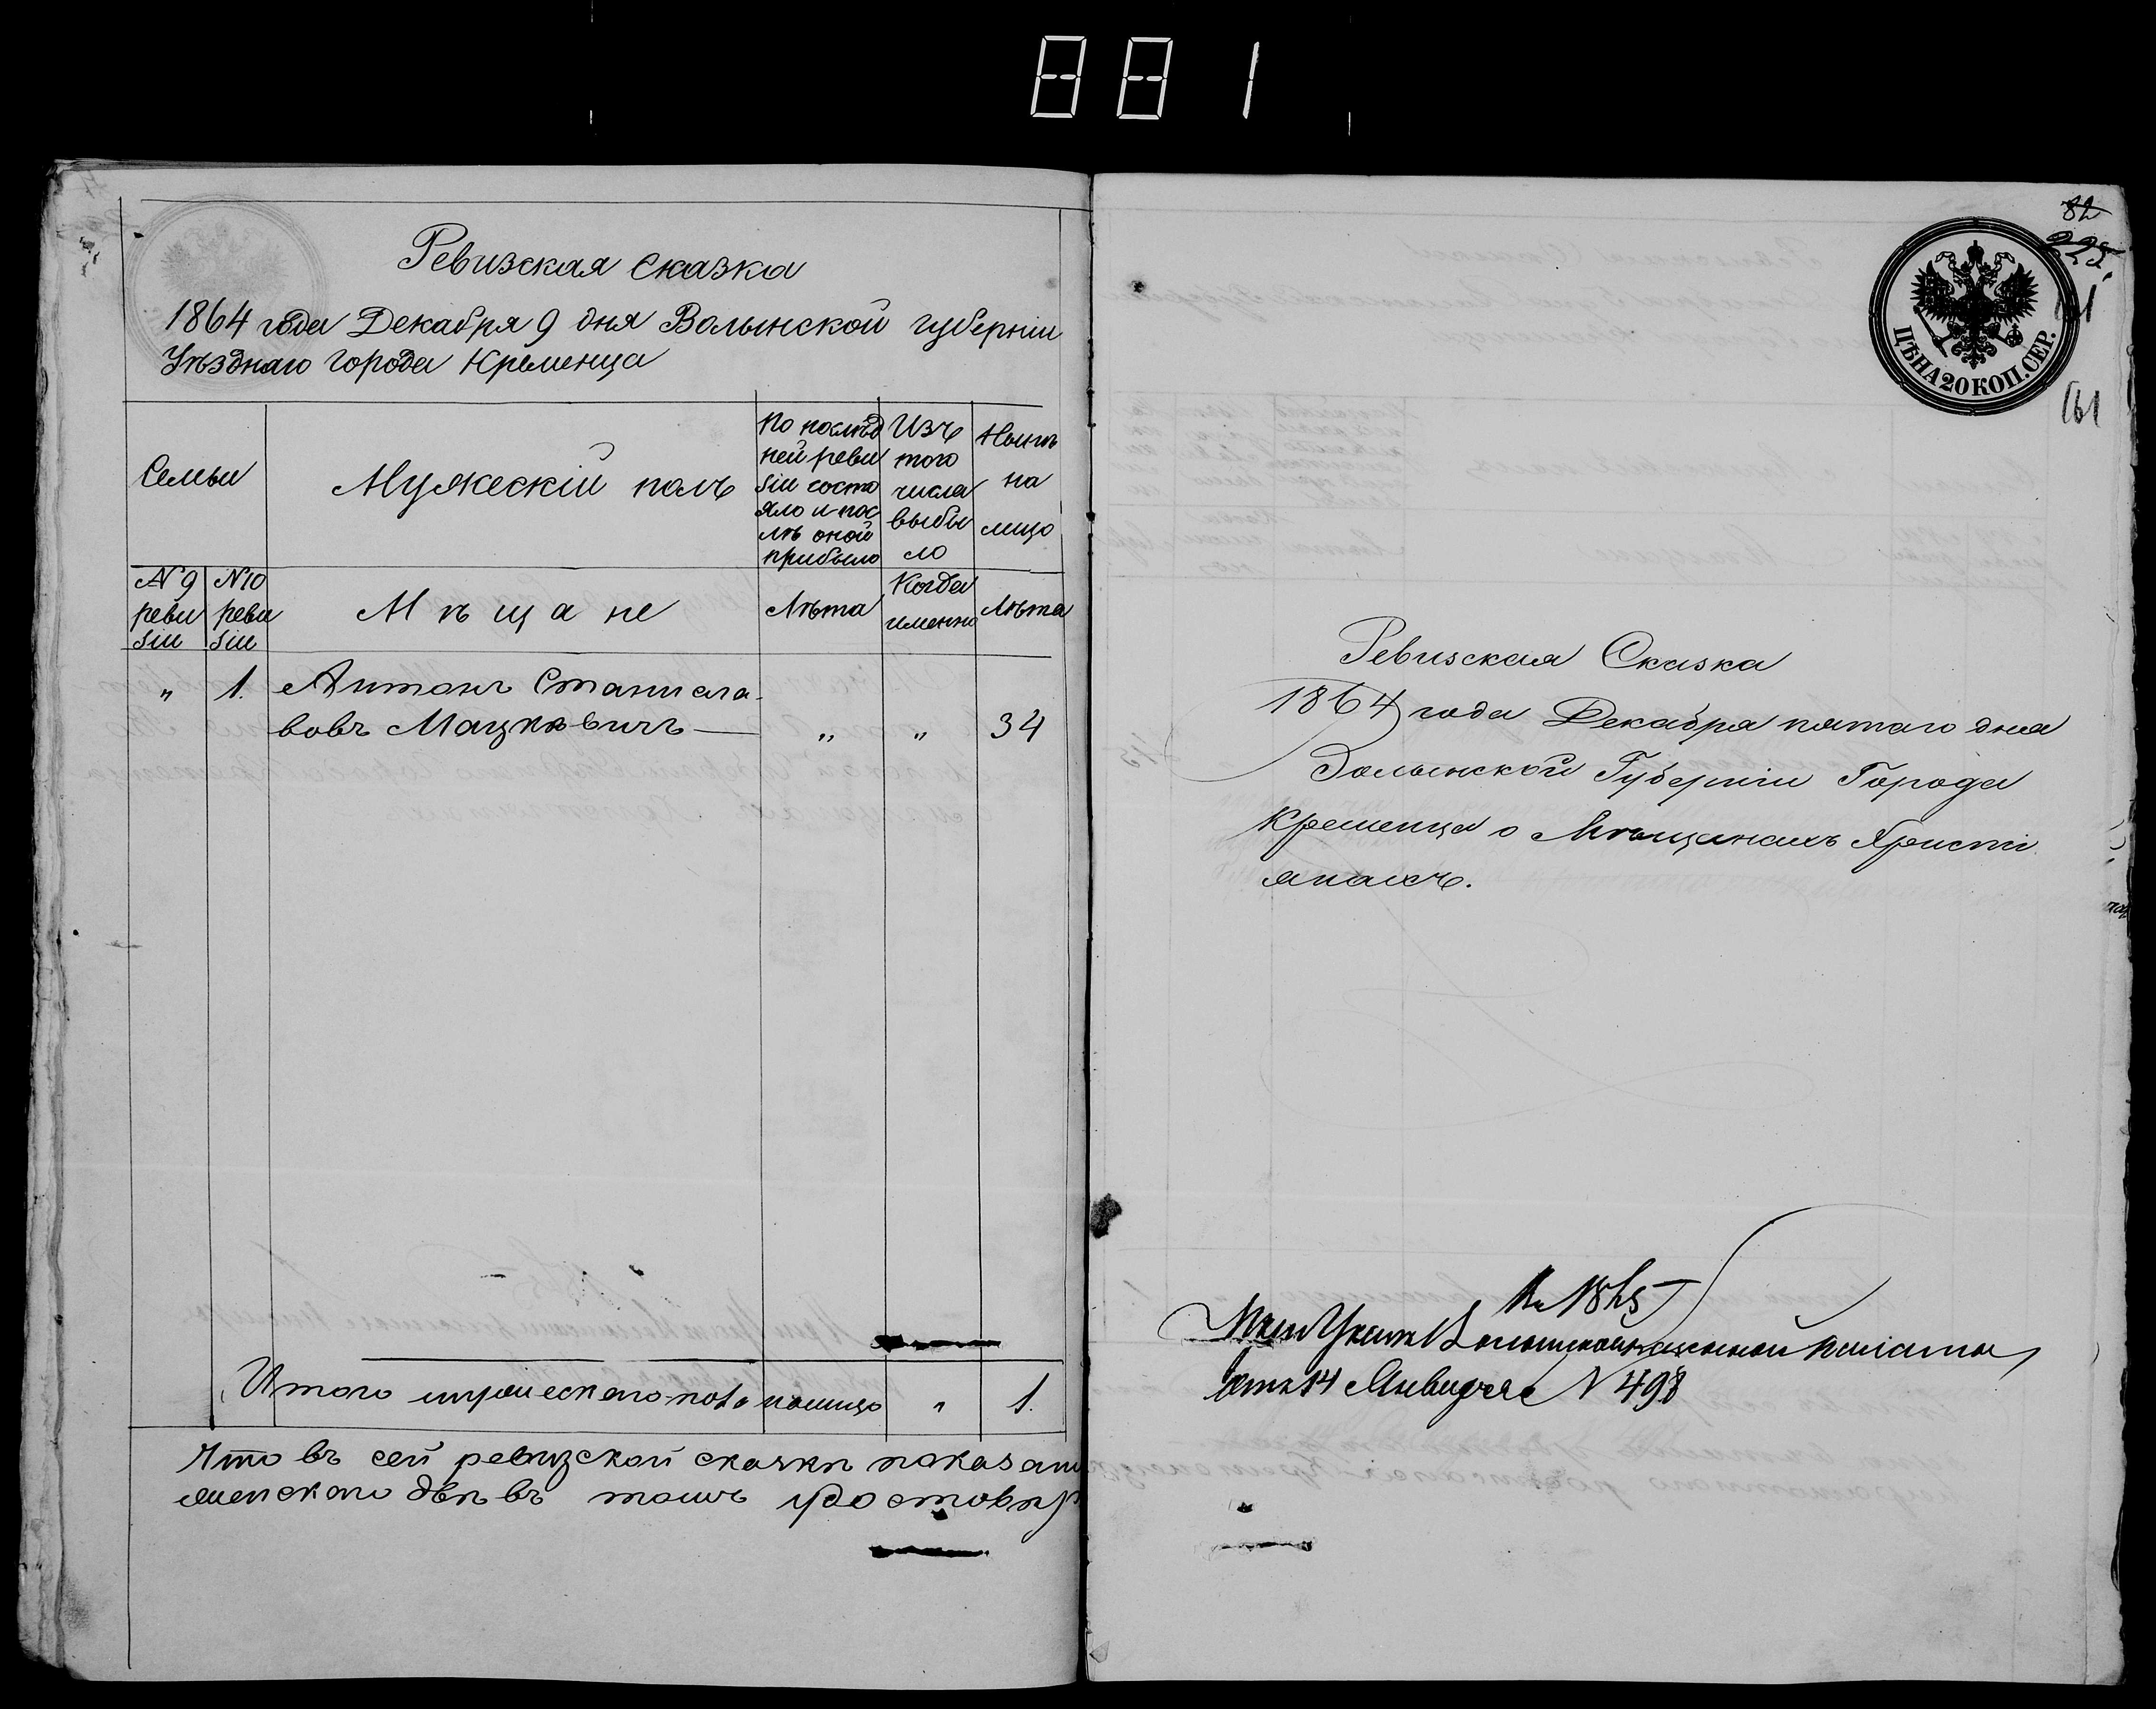 881
Ревизская сказка
1864 года Декабря 9 дня Волынской губерніи
Уѣзднаго города Кременца
Семьи
Мужескій полъ
По послѣд
ней реви
зіи состо
яло и пос
лѣ оной
прибыло
Изъ
того
числа
выбы
ло
Нынѣ
на
лицо
№ 9
реви
зіи
№ 10
реви
зіи
Мѣщане
Лѣта
Когда
именно
Лѣта
" 1. Антонъ Станисла-
вовъ Мацкѣвичъ — " " 34
Итого мужескаго пола налицо " 1.
Что въ сей ревизской сказкѣ показан
въ томъ
82
225
161
ЦѢНА 20 КОП. СЕР.
Ревизская Сказка
1864 года Декабря пятаго дня
Волынской Губерніи Города
Кременца о Мѣщанахъ Христі
янахъ.
1865
При Указѣ Волынской казенной палаты
отъ 14 Января № 498